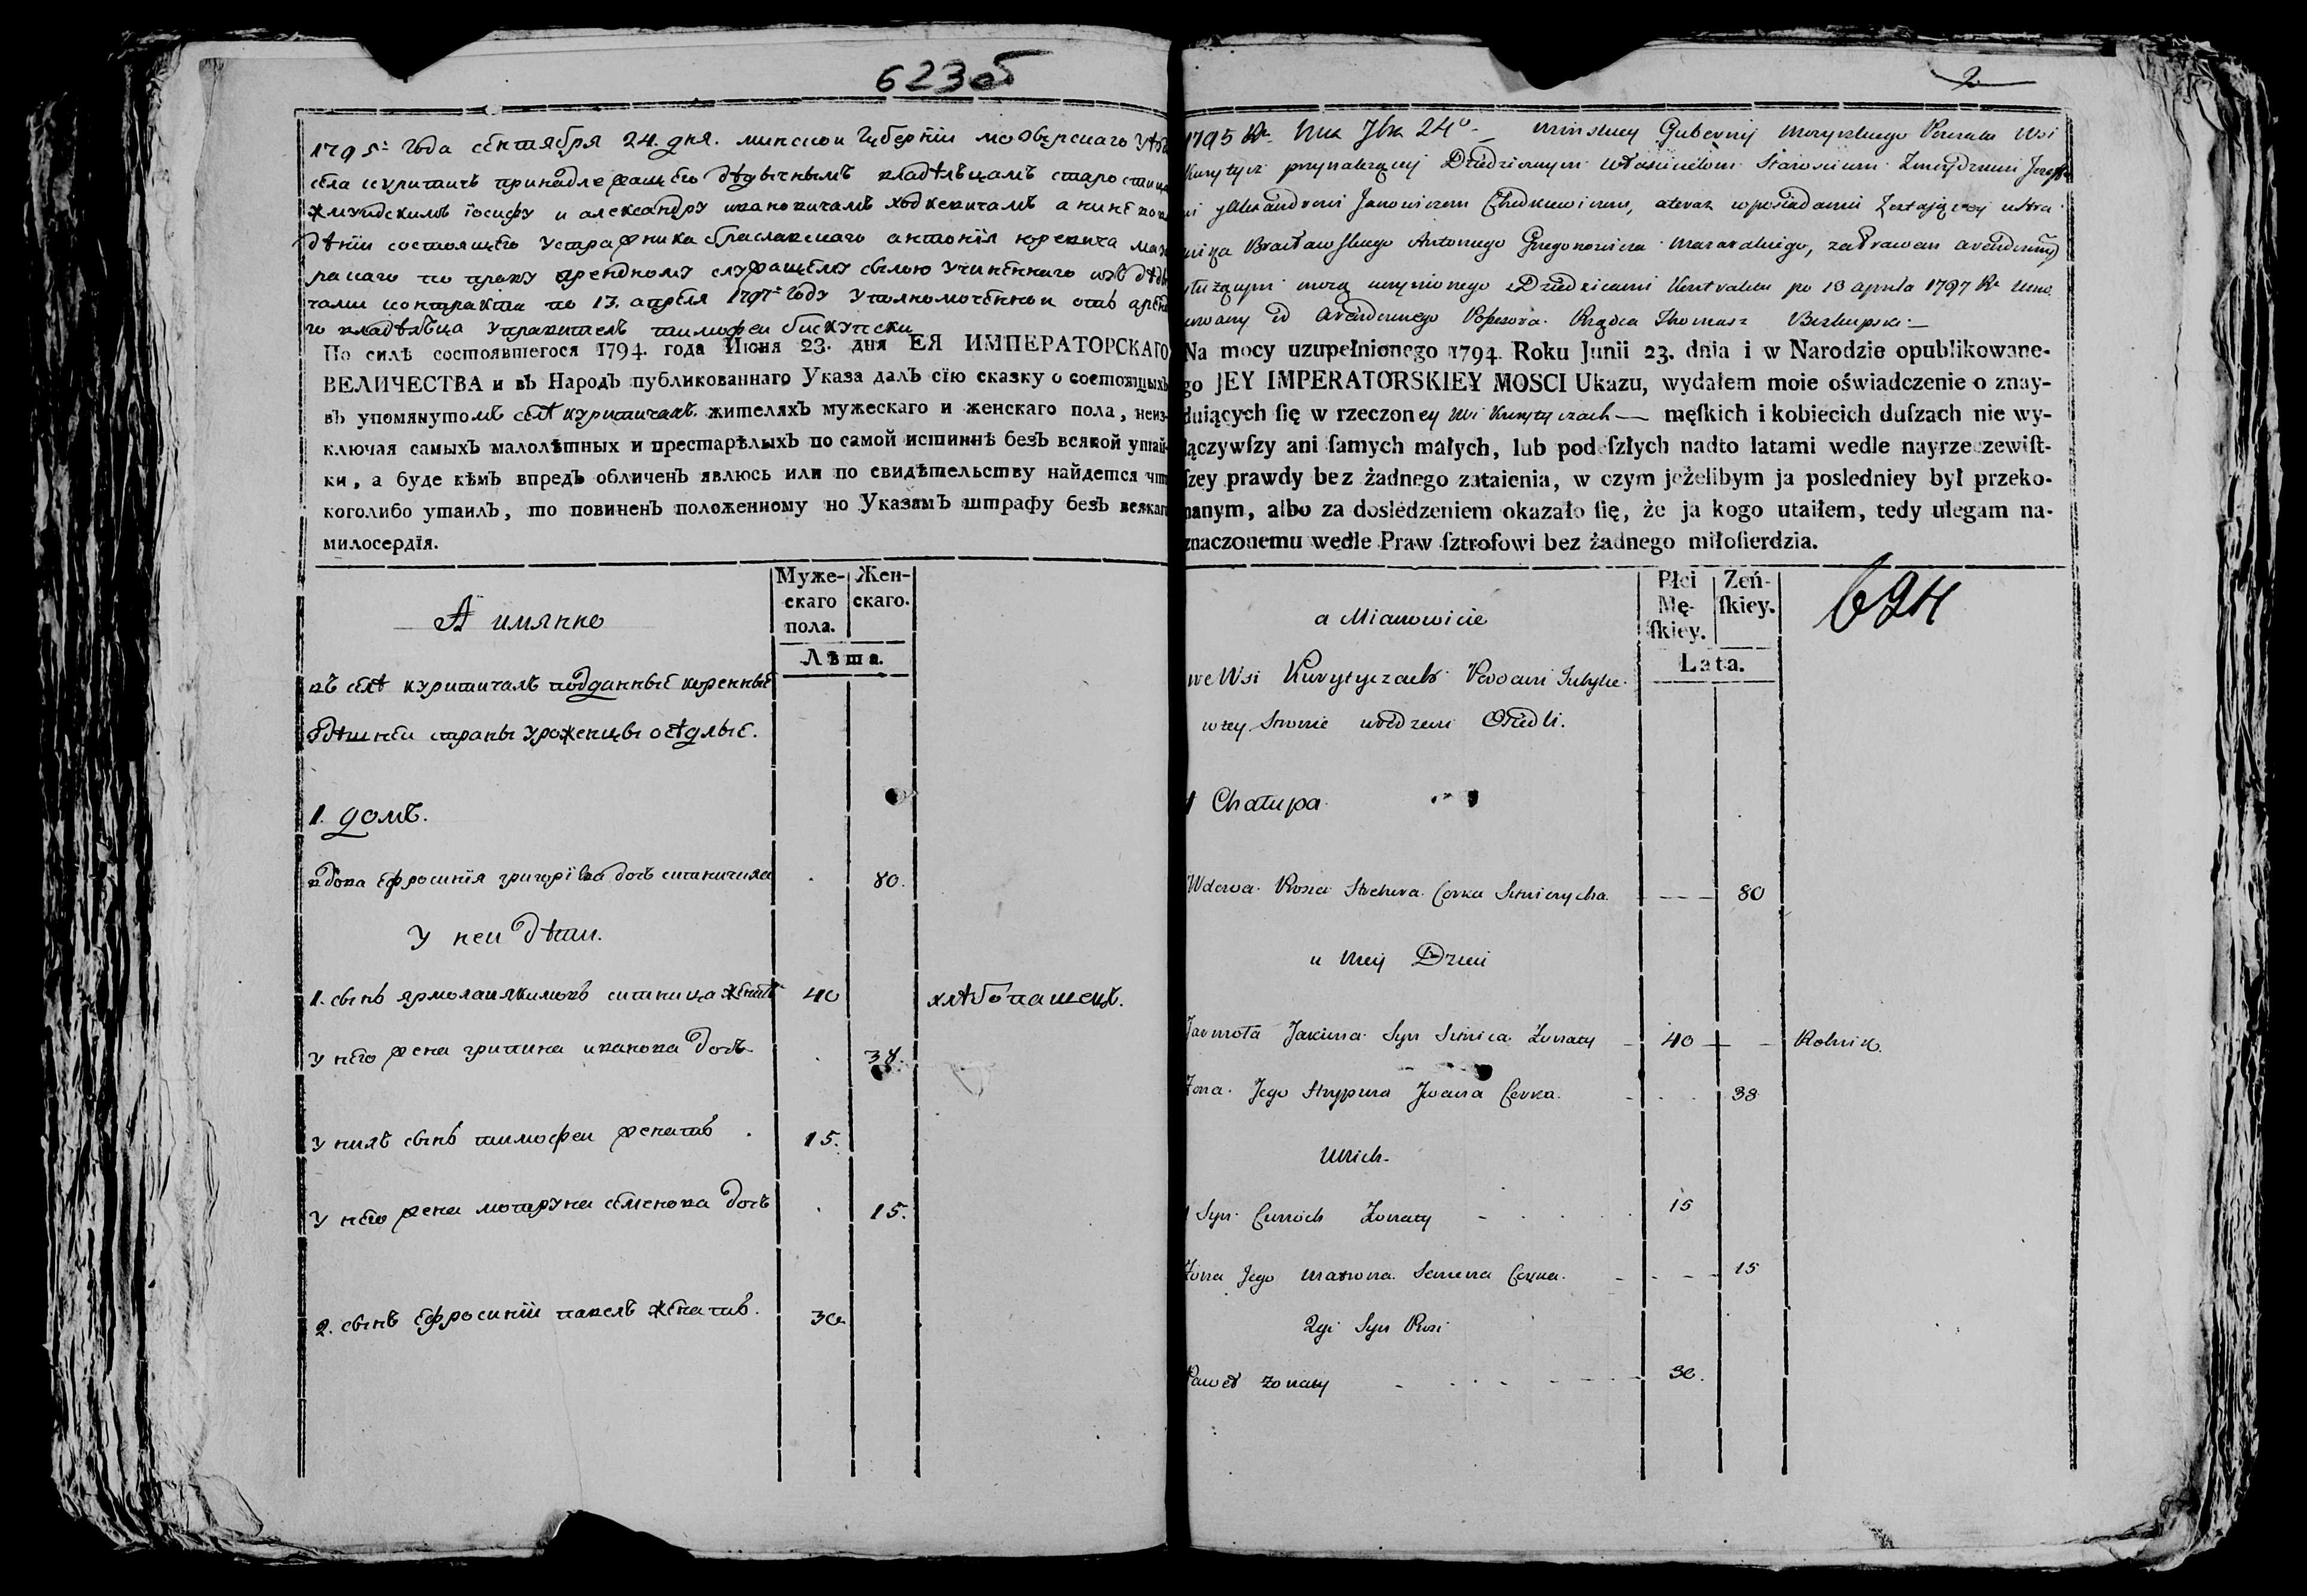 623 об
1795 года сентября 24. дня. минской губернии мозырскаго
села куритичъ принадлежащего дѣдычнымъ владѣльцамъ
жмуйдскимъ іосифу и александру ивановичамъ ходкевичамъ а
дѣніи состоящего у стражника браславскаго антонія
по праву арендному служащему силою учиненнаго
контракта по 13. апреля 1797 году уполномоченной отъ
владѣльца управитель тимофей бискупски
По силѣ состоявшегося 1794. года Июня 23. дня ЕЯ ИМПЕРАТОРСКАГО
ВЕЛИЧЕСТВА и въ Народъ публикованнаго Указа далъ сїю сказку о состоящыхъ
въ упомянутомъ селѣ куритичахъ жителяхъ мужескаго и женскаго пола, неиз-
ключая самыхъ малолѣтныхъ и престарѣлыхъ по самой истиннѣ безъ всякой утай-
ки, а буде кѣмъ впредь обличенъ явлюсь или по свидѣтельству найдется что
коголибо утаилъ, то повиненъ положенному по Указамъ штрафу безъ всякаго
милосердїя.
А имянно
Муже-
скаго
пола.
Жен-
скаго.
Лѣта.
въ селѣ куритичахъ подданные коренные
здѣшней страны уроженцы осѣдлые.
1. домъ.
вдова ефросинія дочь 80.
у ней дѣти.
1. сынъ ярмолай якимовъ ситница женатъ 40 хлѣбопашецъ.
у него жена гришина иванова дочь 38.
у нихъ сынъ тимофей женатъ 15.
у него жена мотруна семенова дочь 15.
2. сынъ ефросиніи павелъ женатъ. 30
2
1795 24 Minskiey Gubernij Mozyrskiego Powiatu Wsi
Kurytycz przynależącey Dziedzicznym Właścicielom Starościcom Zmuydzkim
Alexandrowi Janowiczom Chodkiewiczom, a teraz w posiadaniu
Bracławskiego Antoniego za Prawem
służącym mocą uczynionego z Dziedzicami Kontraktu po 13 aprila 1797
od Arendownego Possesora Rządca Thomasz Biskupski
Na mocy uzupełnionego 1794. Roku Junii 23. dnia i w Narodzie opublikowane-
go JEY IMPERATORSKIEY MOSCI Ukazu, wydałem moie oświadczenie o znay-
duiących ſię w rzeczoney wsi Kurytyczach męſkich i kobiecich duſzach nie wy-
łączywſzy ani ſamych małych, lub podeſzłych nadto latami wedle nayrzeczewiſt-
ſzey prawdy bez żadnego zataienia, w czym jeżelibym ja posledniey był przeko-
nanym, albo za dosledzeniem okazało ſię, że ja kogo utaiłem, tedy ulegam na-
znaczonemu wedle Praw ſztrofowi bez żadnego miłoſierdzia.
a Mianowicie
Płci
Mę-
ſkiey.
Żeń-
ſkiey.
Lata.
624
we Wsi Kurytyczach Poddani
w tey Stronie urodzeni Osiedli.
1 Chałupa
Wdowa Prosia Corka 80
u Niey Dzieci
Jarmoła Jakima Syn Sitnica Żonaty 40 Rolnik
Żona Jego Hrypina Jwana Corka. 38
U Nich
1 Syn Żonaty 15
Żona Jego Matrona Semena Corka. 15
2gi Syn Prosi
Paweł żonaty 30.